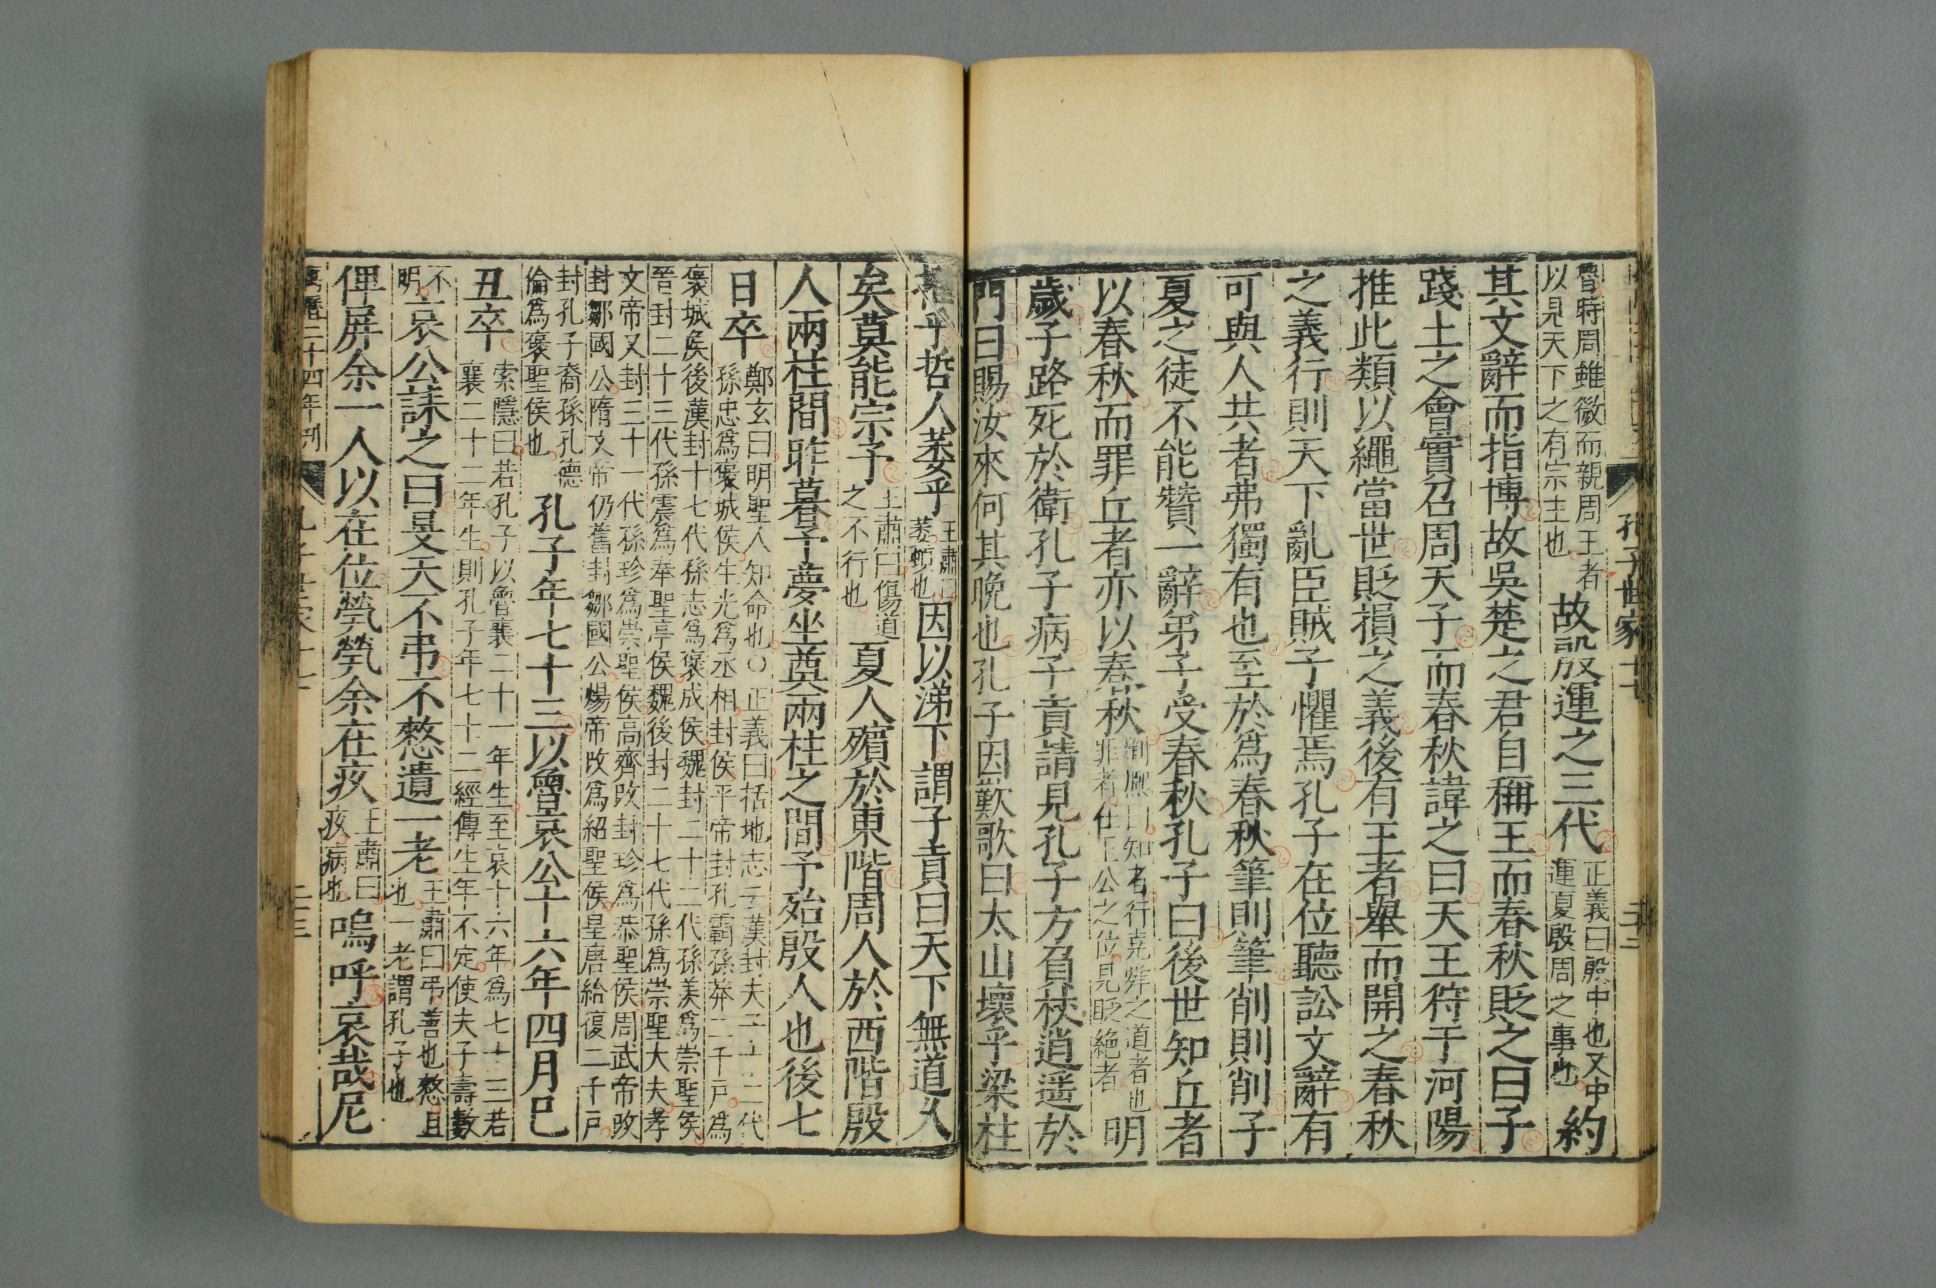 孔子世家十七
魯時周雖微而親周王者
以見天下之有宗主也
故殷運之三代
正義曰殷中也又中
運夏殷周之事也
約
其文辭而指博故吳楚之君自稱王而春秋貶之曰子
踐土之會實召周天子而春秋諱之曰天王狩于河陽
推此類以繩當世貶損之義後有王者舉而開之春秋
之義行則天下亂臣賊子懼焉孔子在位聽訟文辭有
可與人共者弗獨有也至於爲春秋筆則筆削則削子
夏之徒不能贊一辭弟子受春秋孔子曰後世知丘者
以春秋而罪丘者亦以春秋
劉熙曰知者行堯舜之道者也
罪者在王公之位見貶絶者
明
歲子路死於衛孔子病子貢請見孔子方負杖逍遥於
門曰賜汝來何其晚也孔子因歎歌曰太山壞乎梁柱
摧乎哲人萎乎
王肅曰
萎頓也
因以涕下謂子貢曰天下無道久
矣莫能宗予
王肅曰傷道
之不行也
夏人殯於東階周人於西階殷
人兩柱間昨暮予夢坐奠兩柱之間予殆殷人也後七
日卒
鄭玄曰明聖人知命也○正義曰括地志云漢封夫子十二代
孫忠爲褒城侯生光爲丞相封侯平帝封孔霸孫莽二千戶爲
褒城侯後漢封十七代孫志爲褒成侯魏封二十二代孫羨爲崇聖侯
晉封二十三代孫震爲奉聖亭侯魏後封二十七代孫爲崇聖大夫孝
文帝又封三十一代孫珍爲崇聖侯高齊改封珍爲恭聖侯周武帝改
封鄒國公隋文帝仍舊封鄒國公煬帝改爲紹聖侯皇唐給復二千戶
封孔子裔孫孔德
倫爲褒聖侯也
孔子年七十三以魯哀公十六年四月己
丑卒
索隱曰若孔子以魯襄二十一年生至哀十六年爲七十三若
襄二十二年生則孔子年七十二經傳生年不定使夫子壽數
不
明
哀公誄之曰旻天不弔不憖遺一老
王肅曰弔善也憖且
也一老謂孔子也
俾屏余一人以在位煢煢余在疚
王肅曰
疚病也
嗚呼哀哉尼
萬曆二十四年刊
孔子世家十七
二十三